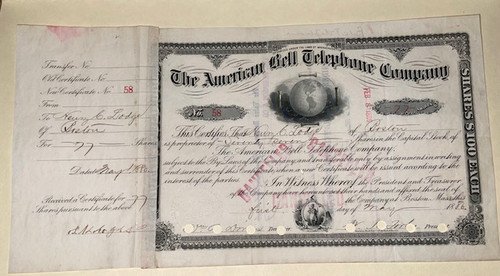 Transfer No
Old Certificate No
New Certificate No. 58
From
To Henry C Lodge
Of Boston
For 77 Shares
Dated May 1 1880
Received Certificate for 77
Shares pursuant to the above
The American Bell Telephone Company
No. 58
77
SHARES $100 EACH
This Certifies That Henry C Lodge of Boston
is proprietor of Seventy Seven Shares in the Capital Stock of
The American Bell Telephone Company,
subject to the By-Laws of the Company and transferable only by assignment in writing
and surrender of this Certificate, when a new Certificate will be issued according to the
interest of the parties.
In Witness Whereof the President and Treasurer
of the Company have hereunto set their hands and affixed the seal of
the Company at Boston, Mass., this
first day of May 1880
CANCELLED